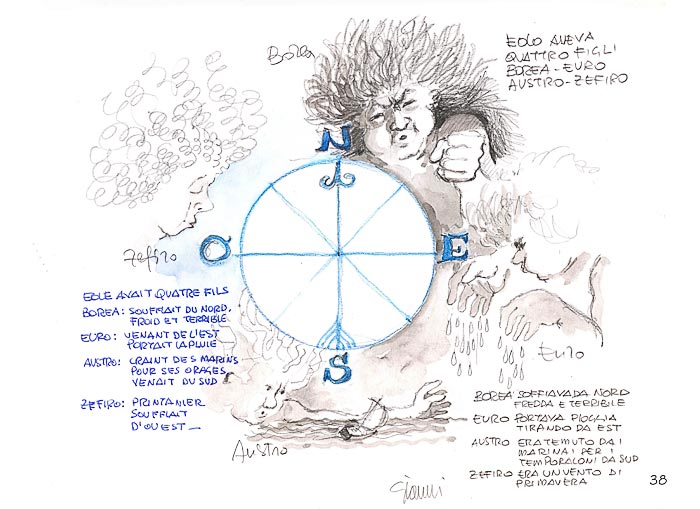 Borea
EOLO AVEVA
QUATTRO FIGLI
BOREA - EURO
AUSTRO - ZEFIRO
N
O
E
S
Zeffiro
EOLE AVAIT QUATRE FILS
BOREA: SOUFFLAIT DU NORD,
FROID ET TERRIBLE
EURO: VENANT DE L'EST
PORTAIT LA PLUIE
AUSTRO: CRAINT DES MARINS
POUR SES ORAGES
VENAIT DU SUD
ZEFIRO: PRINTANIER
SOUFFLAIT
D'OUEST
Euro
Austro
BOREA SOFFIAVA DA NORD
FREDDA E TERRIBILE
EURO PORTAVA PIOGGIA
TIRANDO DA EST
AUSTRO ERA TEMUTO DAI
MARINAI PER I
TEMPORALONI DA SUD
ZEFIRO ERA UN VENTO DI
PRIMAVERA
Gianni
38